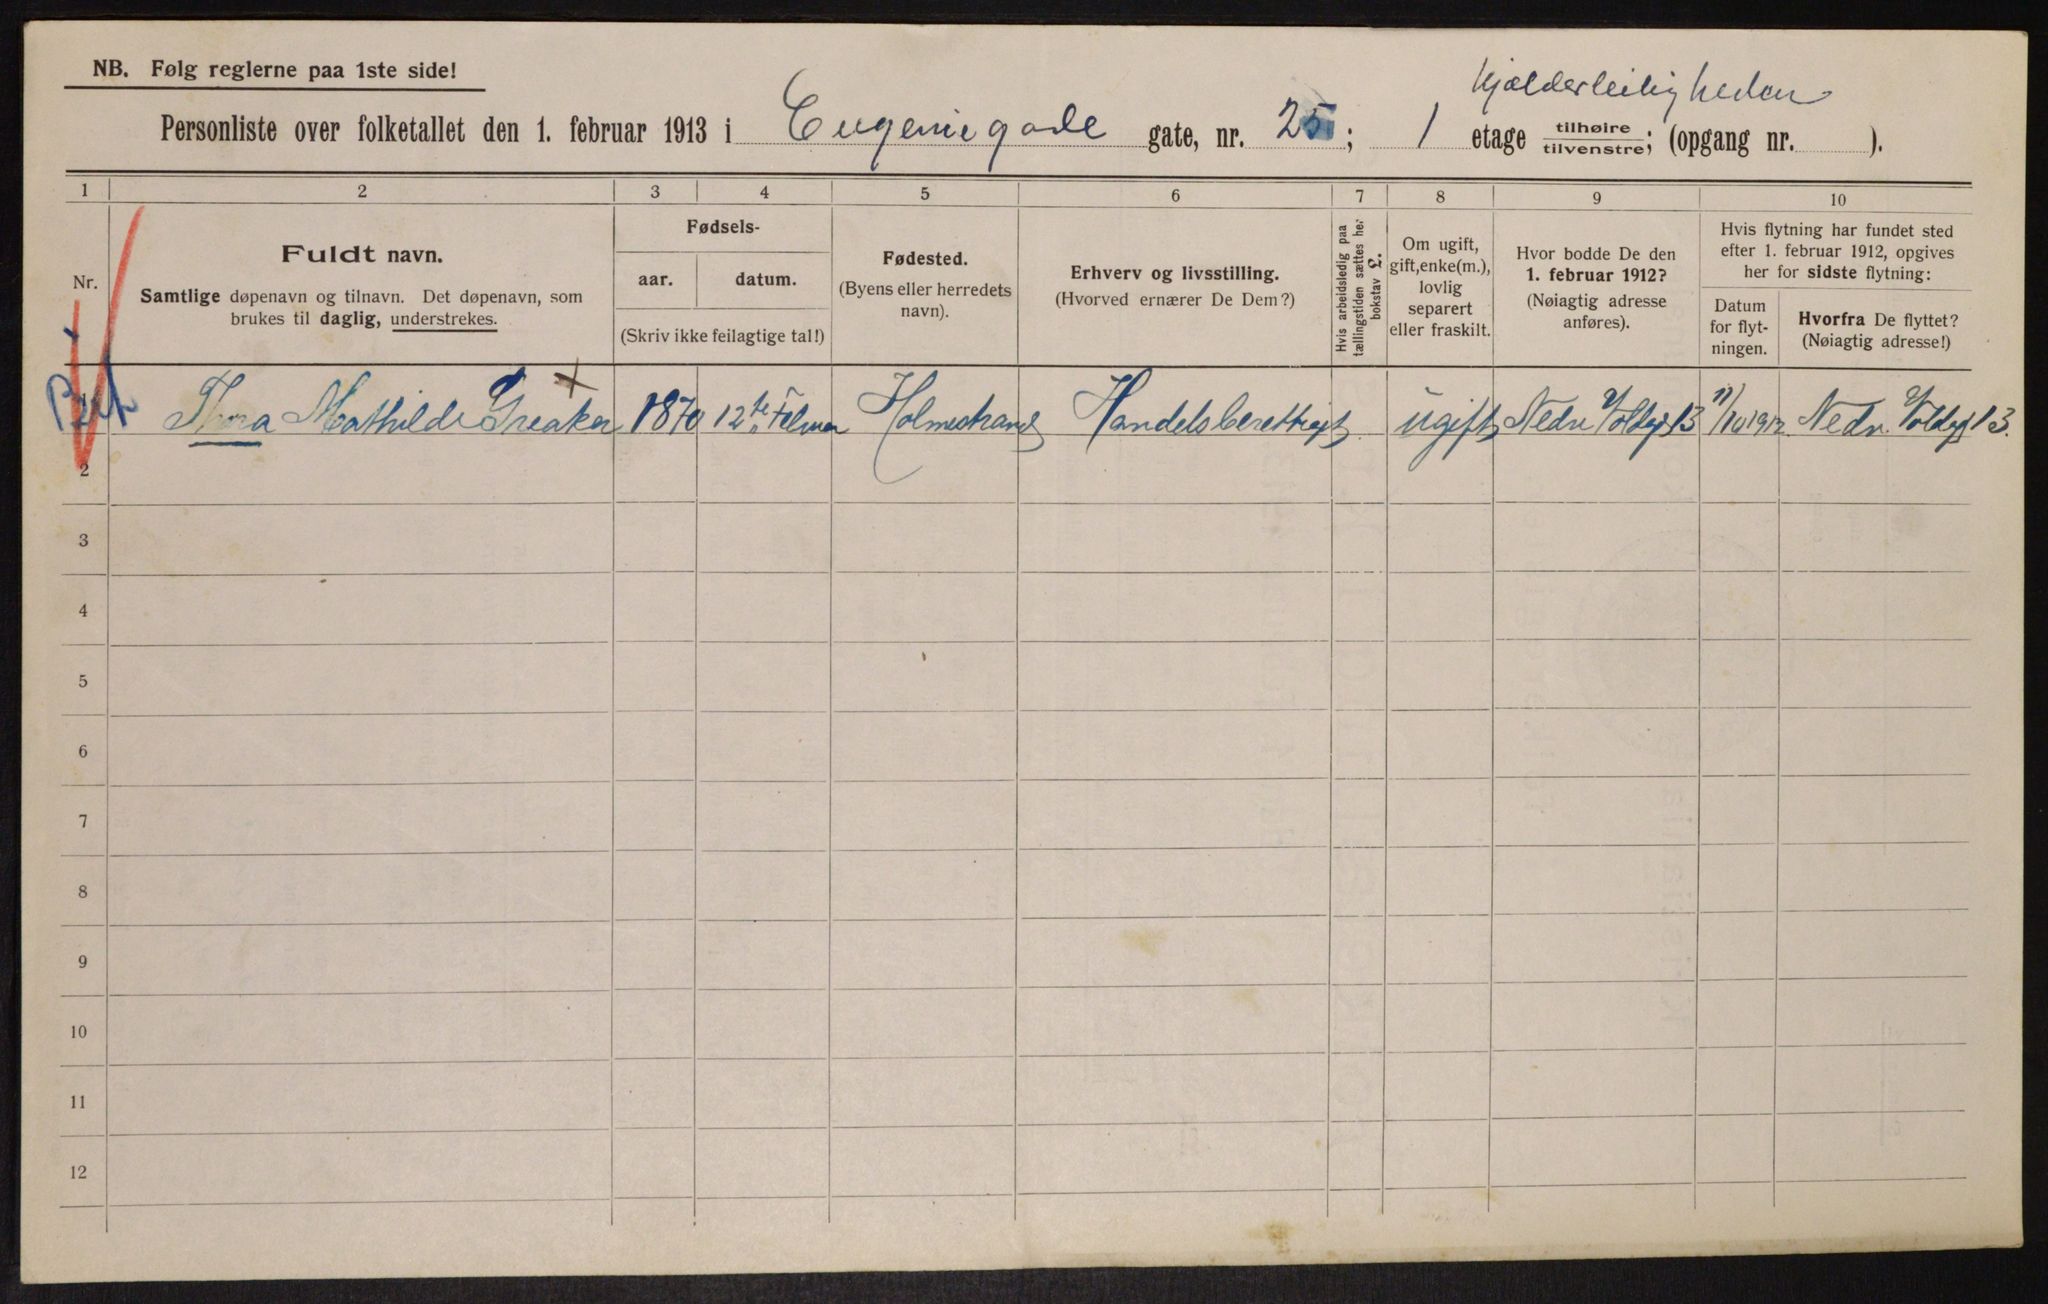 NB. Følg reglerne paa 1ste side!
Kjælderleiligheden
Personliste over folketallet den 1. februar 1913 i Eugeniegade gate, nr. 25; 1 etage tilhøire tilvenstre; (opgang nr. ).
1 2 3 4 5 6 7 8 9 10
Nr.
Fuldt navn.
Samtlige døpenavn og tilnavn. Det døpenavn, som
brukes til daglig, understrekes.
Fødsels-
aar. datum.
(Skriv ikke feilagtige tal!)
Fødested.
(Byens eller herredets
navn).
Erhverv og livsstilling.
(Hvorved ernærer De Dem?)
Hvis arbeidsledig paa
tællingstiden sættes her
bokstav L.
Om ugift,
gift, enke(m.),
lovlig
separert
eller fraskilt.
Hvor bodde De den
1. februar 1912?
(Nøiagtig adresse
anføres).
Hvis flytning har fundet sted
efter 1. februar 1912, opgives
her for sidste flytning:
Datum
for flyt-
ningen.
Hvorfra De flyttet?
(Nøiagtig adresse!)
Thora Mathilde Greaker 1870 12te Holmestrand Handelsberettiget ugift Nedre Voldgt 13 11/10 1912 Nedr. Voldgt 13.
2
3
4
5
6
7
8
9
10
11
12